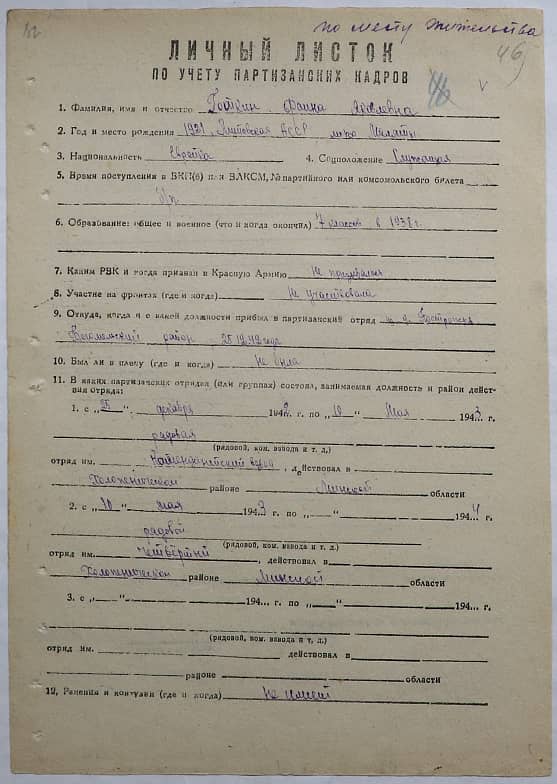 по месту жительства
46
ЛИЧНЫЙ ЛИСТОК
ПО УЧЕТУ ПАРТИЗАНСКИХ КАДРОВ
1. Фамилия, имя и отчество Фаина Яковлевна
2. Год и место рождения 1921, БССР
3. Национальность Еврейка 4. Соцположение Служащая
5. Время поступления в ВКП(б) или ВЛКСМ, № партийного или комсомольского билета
б/п
6. Образование: общее и военное (что и когда окончил) 7 классов в 1938 г.
7. Каким РВК и когда призван в Красную Армию Не призывалась
8. Участие на фронтах (где и когда) Не участвовала
9. Откуда, когда и с какой должности прибыл в партизанский отряд
Бегомльский район 25.12.42 года
10. Был ли в плену (где и когда) Не была
11. В каких партизанских отрядах (или группах) состоял, занимаемая должность и район дейст-
вия отряда:
1. с „25“ декабря 1942 г. по „10“ Мая 1943 г.
рядовая
(рядовой, ком. взвода и т. д.)
отряд им. Комендантский взвод, действовал в
Холопеническом районе Минской области
2. с „10“ мая 1943 г. по „—“ 1944 г.
рядовой
(рядовой, ком. взвода и т. д.)
отряд им. Четвёртый, действовал в
Холопеническом районе Минской области
3. с „—“ 194... г. по „—“ 194... г.
(рядовой, ком. взвода и т. д.)
отряд им. действовал в
районе области
12. Ранения и контузии (где и когда) Не имеет